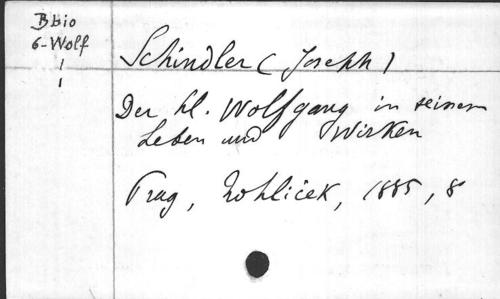 Bbio
6-Wolf
1
1
Schindler (Joseph)
Der hl. Wolfgang in seinem
Leben und Wirken
Prag, Rohlicek, 1885, 8